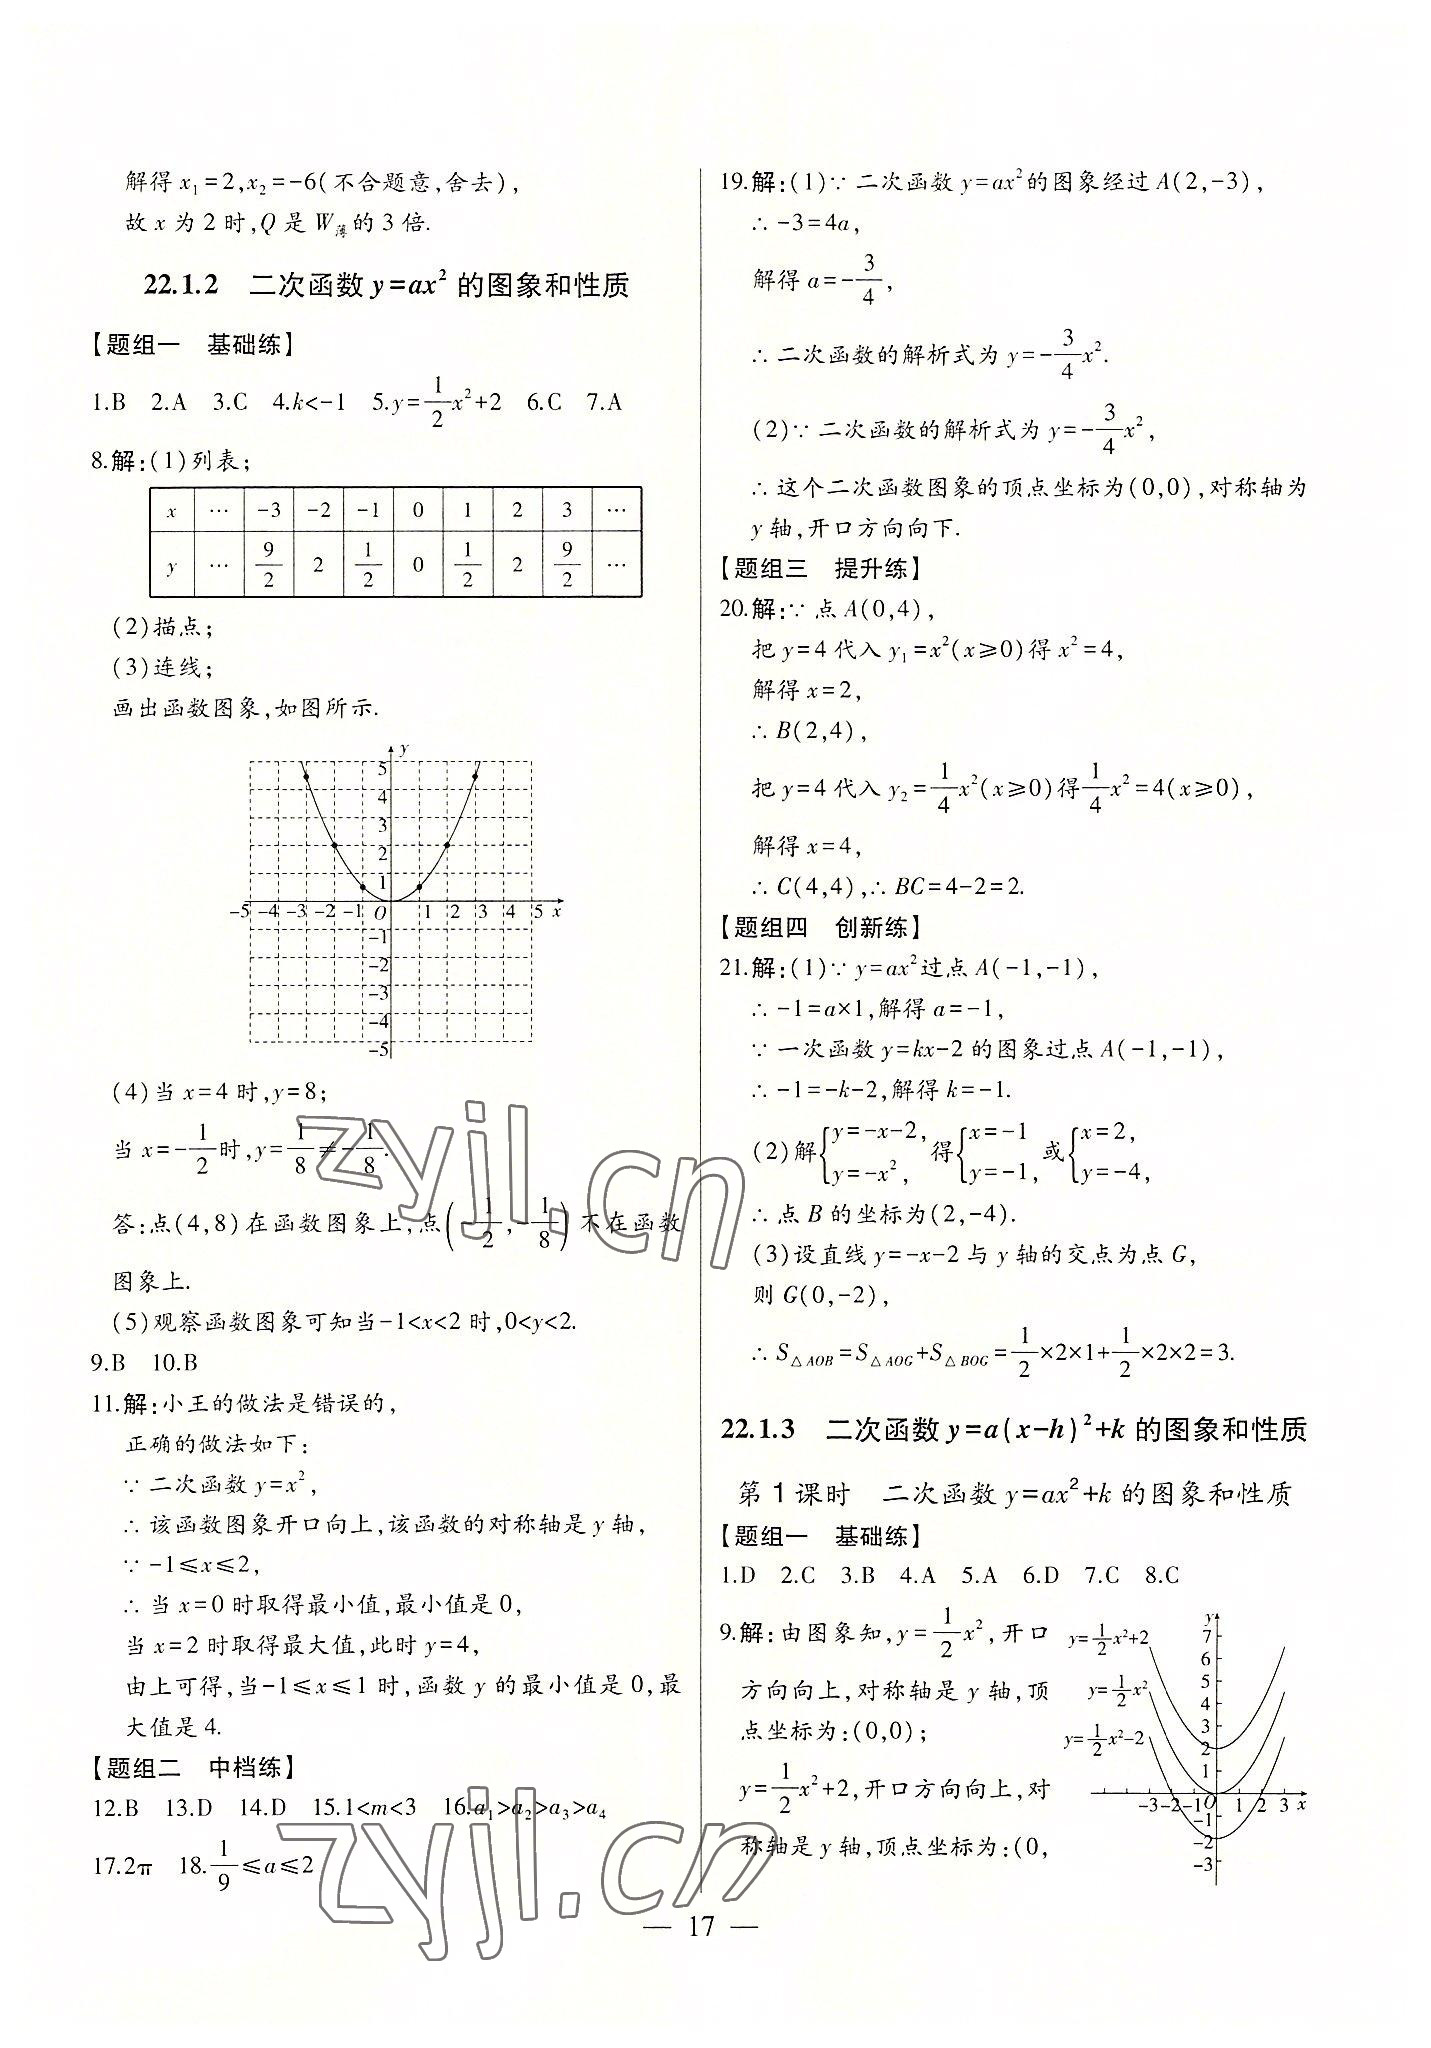 解得 x₁=2,x₂=-6(不合题意,舍去),
故 x 为 2 时,Q 是 W薄的 3 倍.
22.1.2 二次函数 y=ax² 的图象和性质
【题组一 基础练】
1.B 2.A 3.C 4.k<-1 5.y=1/2x²+2 6.C 7.A
8.解:(1)列表;
x … -3 -2 -1 0 1 2 3 …
y … 9/2 2 1/2 0 1/2 2 9/2 …
(2)描点;
(3)连线;
画出函数图象,如图所示.
y
5
4
3
2
1
-5 -4 -3 -2 -1 O 1 2 3 4 5 x
-1
-2
-3
-4
-5
(4)当 x=4 时,y=8;
当 x=-1/2时,y=1/8≠-1/8.
答:点(4,8)在函数图象上,点(-1/2,-1/8)不在函数
图象上.
(5)观察函数图象可知当-1<x<2 时,0<y<2.
9.B 10.B
11.解:小王的做法是错误的,
正确的做法如下:
∵二次函数 y=x²,
∴该函数图象开口向上,该函数的对称轴是 y 轴,
∵-1≤x≤2,
∴当 x=0 时取得最小值,最小值是 0,
当 x=2 时取得最大值,此时 y=4,
由上可得,当-1≤x≤1 时,函数 y 的最小值是 0,最
大值是 4.
【题组二 中档练】
12.B 13.D 14.D 15.1<m<3 16.a₁>a₂>a₃>a₄
17.2π 18.1/9≤a≤2
19.解:(1)∵二次函数 y=ax²的图象经过 A(2,-3),
∴-3=4a,
解得 a=-3/4,
∴二次函数的解析式为 y=-3/4x².
(2)∵二次函数的解析式为 y=-3/4x²,
∴这个二次函数图象的顶点坐标为(0,0),对称轴为
y 轴,开口方向向下.
【题组三 提升练】
20.解:∵点 A(0,4),
把 y=4 代入 y₁=x²(x≥0)得 x²=4,
解得 x=2,
∴B(2,4),
把 y=4 代入 y₂=1/4x²(x≥0)得1/4x²=4(x≥0),
解得 x=4,
∴C(4,4),∴BC=4-2=2.
【题组四 创新练】
21.解:(1)∵y=ax²过点 A(-1,-1),
∴-1=a×1,解得 a=-1,
∵一次函数 y=kx-2 的图象过点 A(-1,-1),
∴-1=-k-2,解得 k=-1.
(2)解{y=-x-2, y=-x², 得{x=-1 y=-1, 或{x=2, y=-4,
∴点 B 的坐标为(2,-4).
(3)设直线 y=-x-2 与 y 轴的交点为点 G,
则 G(0,-2),
∴S△AOB=S△AOG+S△BOG=1/2×2×1+1/2×2×2=3.
22.1.3 二次函数 y=a(x-h)²+k 的图象和性质
第 1 课时 二次函数 y=ax²+k 的图象和性质
【题组一 基础练】
1.D 2.C 3.B 4.A 5.A 6.D 7.C 8.C
9.解:由图象知,y=1/2x²,开口
方向向上,对称轴是 y 轴,顶
点坐标为:(0,0);
y=1/2x²+2,开口方向向上,对
称轴是 y 轴,顶点坐标为:(0,
y
y=1/2x²+2
y=1/2x²
y=1/2x²-2
7
6
5
4
3
2
1
-3 -2 -1 O 1 2 3 x
-1
-2
-3
— 17 —
zyjl.cn
zyjl.cn